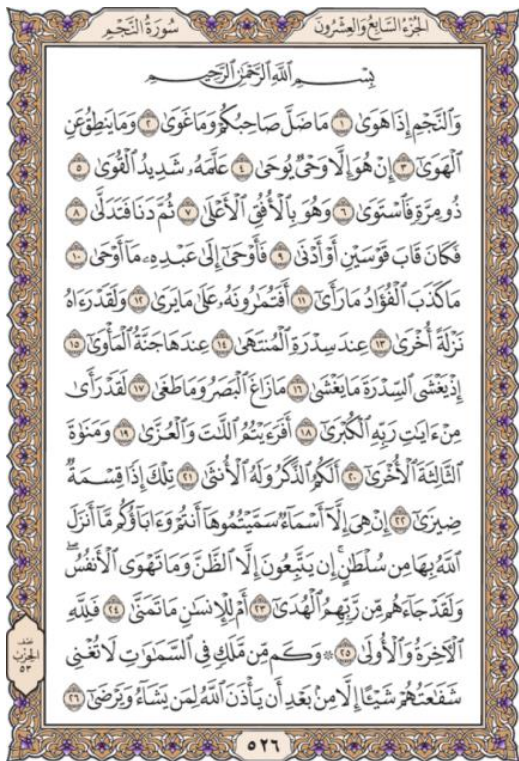 سُورَةُ النَّجْمِ
الجُزْءُ السَّابِعُ وَالعِشْرُونَ
بِسْمِ ٱللَّهِ ٱلرَّحْمَٰنِ ٱلرَّحِيمِ
وَٱلنَّجْمِ إِذَا هَوَىٰ ١ مَا ضَلَّ صَاحِبُكُمْ وَمَا غَوَىٰ ٢ وَمَا يَنطِقُ عَنِ
ٱلْهَوَىٰٓ ٣ إِنْ هُوَ إِلَّا وَحْىٌ يُوحَىٰ ٤ عَلَّمَهُۥ شَدِيدُ ٱلْقُوَىٰ ٥
ذُو مِرَّةٍ فَٱسْتَوَىٰ ٦ وَهُوَ بِٱلْأُفُقِ ٱلْأَعْلَىٰ ٧ ثُمَّ دَنَا فَتَدَلَّىٰ ٨
فَكَانَ قَابَ قَوْسَيْنِ أَوْ أَدْنَىٰ ٩ فَأَوْحَىٰٓ إِلَىٰ عَبْدِهِۦ مَآ أَوْحَىٰ ١٠
مَا كَذَبَ ٱلْفُؤَادُ مَا رَأَىٰٓ ١١ أَفَتُمَٰرُونَهُۥ عَلَىٰ مَا يَرَىٰ ١٢ وَلَقَدْ رَءَاهُ
نَزْلَةً أُخْرَىٰ ١٣ عِندَ سِدْرَةِ ٱلْمُنتَهَىٰ ١٤ عِندَهَا جَنَّةُ ٱلْمَأْوَىٰٓ ١٥
إِذْ يَغْشَى ٱلسِّدْرَةَ مَا يَغْشَىٰ ١٦ مَا زَاغَ ٱلْبَصَرُ وَمَا طَغَىٰ ١٧ لَقَدْ رَأَىٰ
مِنْ ءَايَٰتِ رَبِّهِ ٱلْكُبْرَىٰٓ ١٨ أَفَرَءَيْتُمُ ٱللَّٰتَ وَٱلْعُزَّىٰ ١٩ وَمَنَوٰةَ
ٱلثَّالِثَةَ ٱلْأُخْرَىٰٓ ٢٠ أَلَكُمُ ٱلذَّكَرُ وَلَهُ ٱلْأُنثَىٰ ٢١ تِلْكَ إِذًا قِسْمَةٌ
ضِيزَىٰٓ ٢٢ إِنْ هِىَ إِلَّآ أَسْمَآءٌ سَمَّيْتُمُوهَآ أَنتُمْ وَءَابَآؤُكُم مَّآ أَنزَلَ
ٱللَّهُ بِهَا مِن سُلْطَٰنٍ ۚ إِن يَتَّبِعُونَ إِلَّا ٱلظَّنَّ وَمَا تَهْوَى ٱلْأَنفُسُ ۖ
وَلَقَدْ جَآءَهُم مِّن رَّبِّهِمُ ٱلْهُدَىٰٓ ٢٣ أَمْ لِلْإِنسَٰنِ مَا تَمَنَّىٰ ٢٤ فَلِلَّهِ
ٱلْءَاخِرَةُ وَٱلْأُولَىٰ ٢٥ ۞ وَكَم مِّن مَّلَكٍ فِى ٱلسَّمَٰوَٰتِ لَا تُغْنِى
شَفَٰعَتُهُمْ شَيْـًٔا إِلَّا مِنۢ بَعْدِ أَن يَأْذَنَ ٱللَّهُ لِمَن يَشَآءُ وَيَرْضَىٰٓ ٢٦
نِصْف
الحِزْب
٥٣
٥٢٦